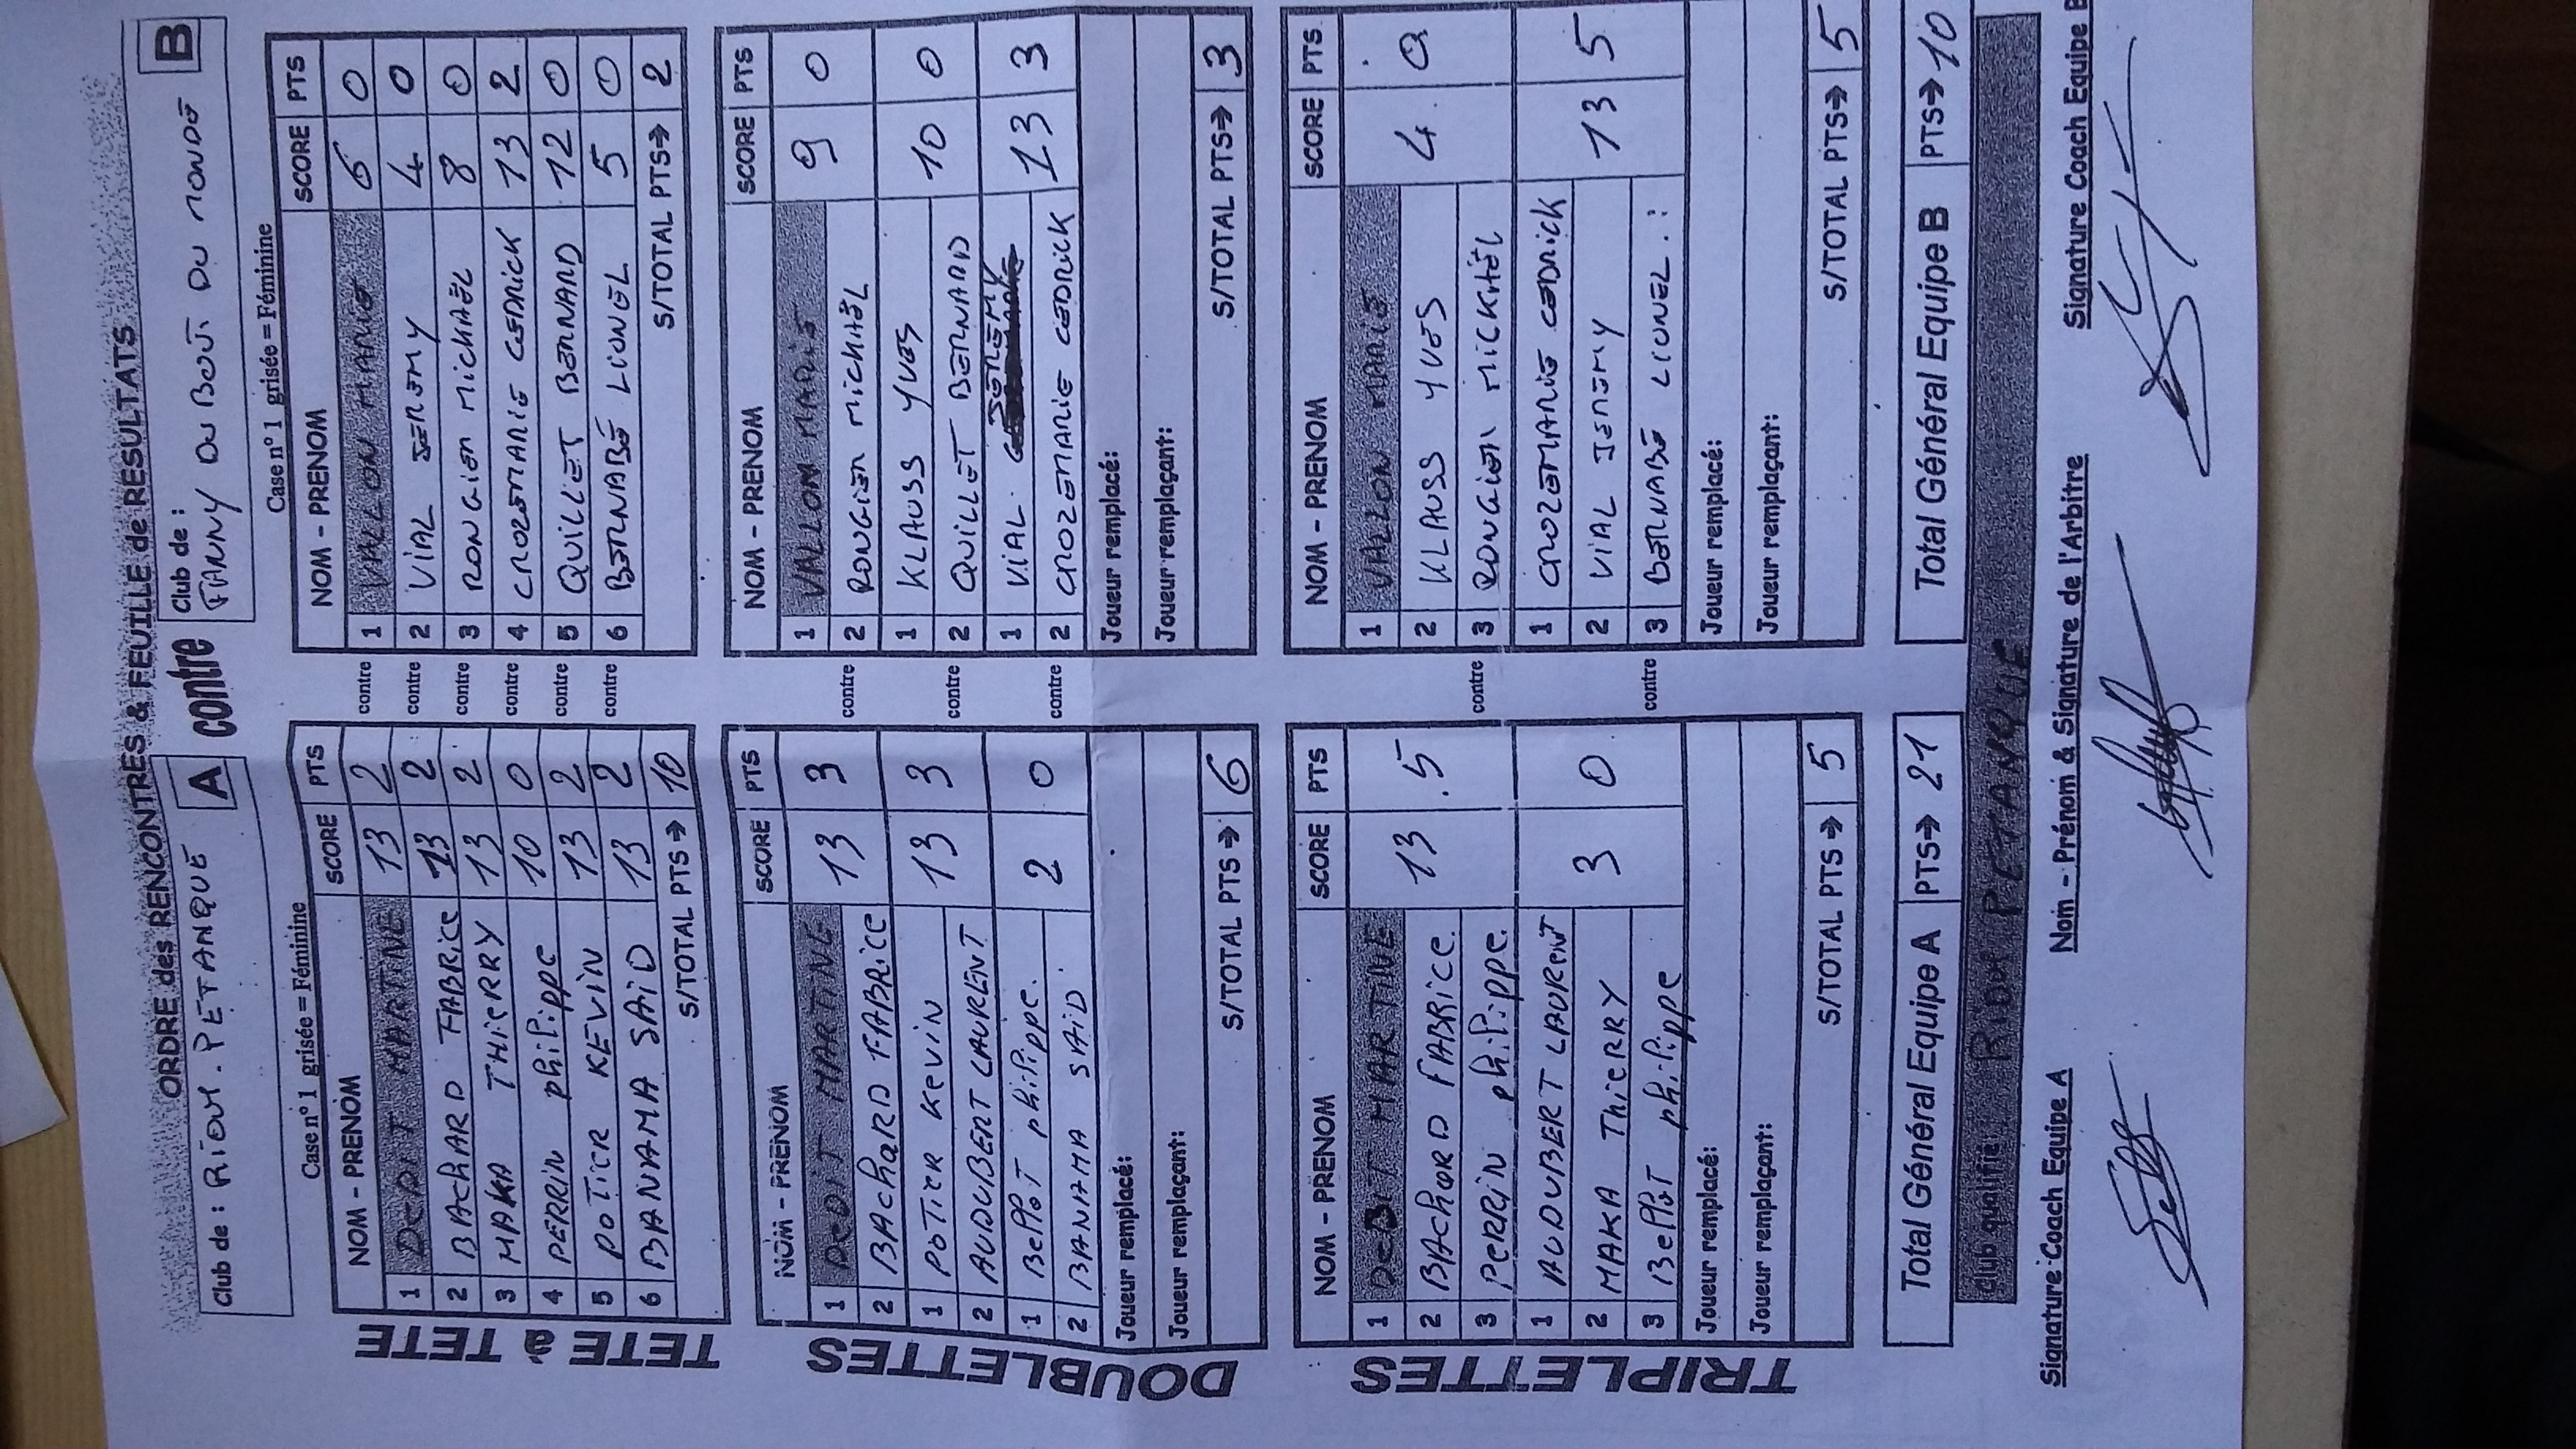 ORDRE des RENCONTRES & FEUILLE de RESULTATS
Club de : RiOM. PETANQUE A
contre
Club de : B
FANNY DU BOUT DU MONDE
Case n° 1 grisée = Féminine
NOM - PRENOM SCORE PTS
1 DEBIT MARTINE 13 2
2 BAChARD FABRICE 13 2
3 MAKA THiERRY 13 2
4 PERRIN philippe 10 0
5 POTIER KEVIN 13 2
6 BANAMA SAiD 13 2
S/TOTAL PTS➔ 10
TETE à TETE
contre
contre
contre
contre
contre
contre
Case n° 1 grisée = Féminine
NOM - PRENOM SCORE PTS
1 VALLON MARIE 6 0
2 ViAL JEREMY 4 0
3 ROUGIER MICHAËL 8 0
4 CROZEMARIE CEDRICK 13 2
5 QUILLET BERNARD 12 0
6 BERNABÉ LIONEL 5 0
S/TOTAL PTS➔ 2
NOM - PRENOM SCORE PTS
1 DEBIT MARTINE 13 3
2 BAChARD FABRICE
1 POTIER KEVIN 13 3
2 AUDUBERT LAURENT
1 BEllOT philippe. 2 0
2 BANAMA SAiD.
Joueur remplacé:
Joueur remplaçant:
S/TOTAL PTS➔ 6
DOUBLETTES
contre
contre
contre
NOM - PRENOM SCORE PTS
1 VALLON MARIE 9 0
2 ROUGIER MICHAËL
1 KLAUSS YVES 10 0
2 QUILLET BERNARD
1 ViAL JEREMY 13 3
2 CROZEMARIE CEDRICK
Joueur remplacé:
Joueur remplaçant:
S/TOTAL PTS➔ 3
NOM - PRENOM SCORE PTS
1 DEBIT MARTINE 13 5
2 BAChARD FABRICE.
3 PERRIN philippe.
1 AUDUBERT LAURENT 3 0
2 MAKA ThiERRY
3 BEllOT philippe
Joueur remplacé:
Joueur remplaçant:
S/TOTAL PTS➔ 5
TRIPLETTES
contre
contre
NOM - PRENOM SCORE PTS
1 VALLON MARIE 4 0
2 KLAUSS YVES
3 ROUGIER MICKAËL
1 CROZEMARIE CEDRICK 13 5
2 ViAL JEREMY
3 BERNABÉ LIONEL
Joueur remplacé:
Joueur remplaçant:
S/TOTAL PTS➔ 5
Total Général Equipe A PTS➔ 21
Total Général Equipe B PTS➔ 10
Club qualifié : RiOM PETANQUE
Signature Coach Equipe A
Nom - Prénom & Signature de l'Arbitre
Signature Coach Equipe B